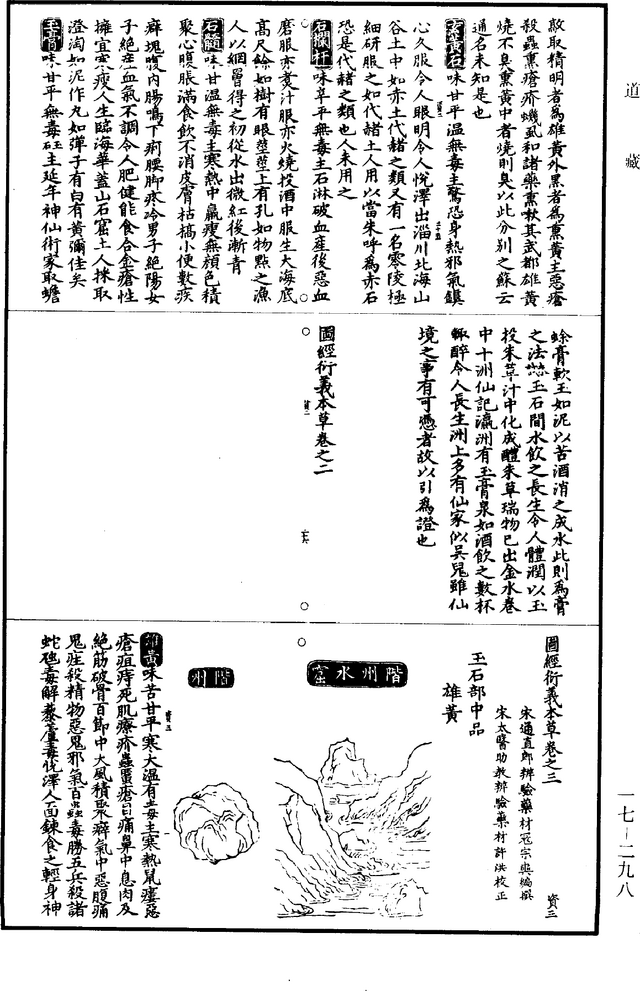 道藏
敵取精明者為雄黃外黑者為熏黃主惡瘡
殺蟲熏瘡疥蟣虱和諸藥熏欬其武都雄黃
燒不臭熏黃中者燒則臭以此分別之蘇云
通名未知是也
味甘平溫無毒主驚恐身熱邪氣鎮
心久服令人眼明令人悅澤出淄川北海山
谷土中如赤土代赭之類又有一名零陵極
細研服之如代赭土人用以當朱呼為赤石
恐是代赭之類也人未用之
石欄杆味辛平無毒主石淋破血產後惡血
磨服亦煮汁服亦火燒投酒中服生大海底
高尺餘如樹有根莖莖上有孔如物點之漁
人以網罾得之初從水出微紅後漸青
石髓味甘溫無毒主寒熱中羸瘦無顏色積
聚心腹脹滿食飲不消皮膚枯槁小便數疾
癖塊腹內腸鳴下痢腰腳疼冷男子絕陽女
子絕產血氣不調令人肥健能食合金瘡性
擁宜寒瘦人生臨海華蓋山石窟土人採取
澄淘如泥作丸如彈子有白有黃彌佳矣
玉膏味甘平無毒玉主延年神仙術家取蟾
蜍膏軟玉如泥以苦酒消之成水此則為膏
之法玉石間水飲之長生令人體潤以玉
投朱草汁中化成醴朱草瑞物已出金水卷
中十洲仙記瀛洲有玉膏泉如酒飲之數杯
輒醉令人長生洲上多有仙家似吳兒雖仙
境之事有可憑者故以引為證也
圖經衍義本草卷之二
圖經衍義本草卷之三
資三
宋通直郎辨驗藥材寇宗奭編撰
宋太醫助教辨驗藥材許洪校正
玉石部中品
雄黃
階州水窟
階州
雄黃味苦甘平寒大溫有毒主寒熱鼠瘻惡
瘡疽痔死肌療疥蟲䘌瘡目痛鼻中息肉及
絕筋破骨百節中大風積聚癖氣中惡腹痛
鬼疰殺精物惡鬼邪氣百蟲毒勝五兵殺諸
蛇虺毒解藜蘆毒悅澤人面鍊食之輕身神
一七－二九八